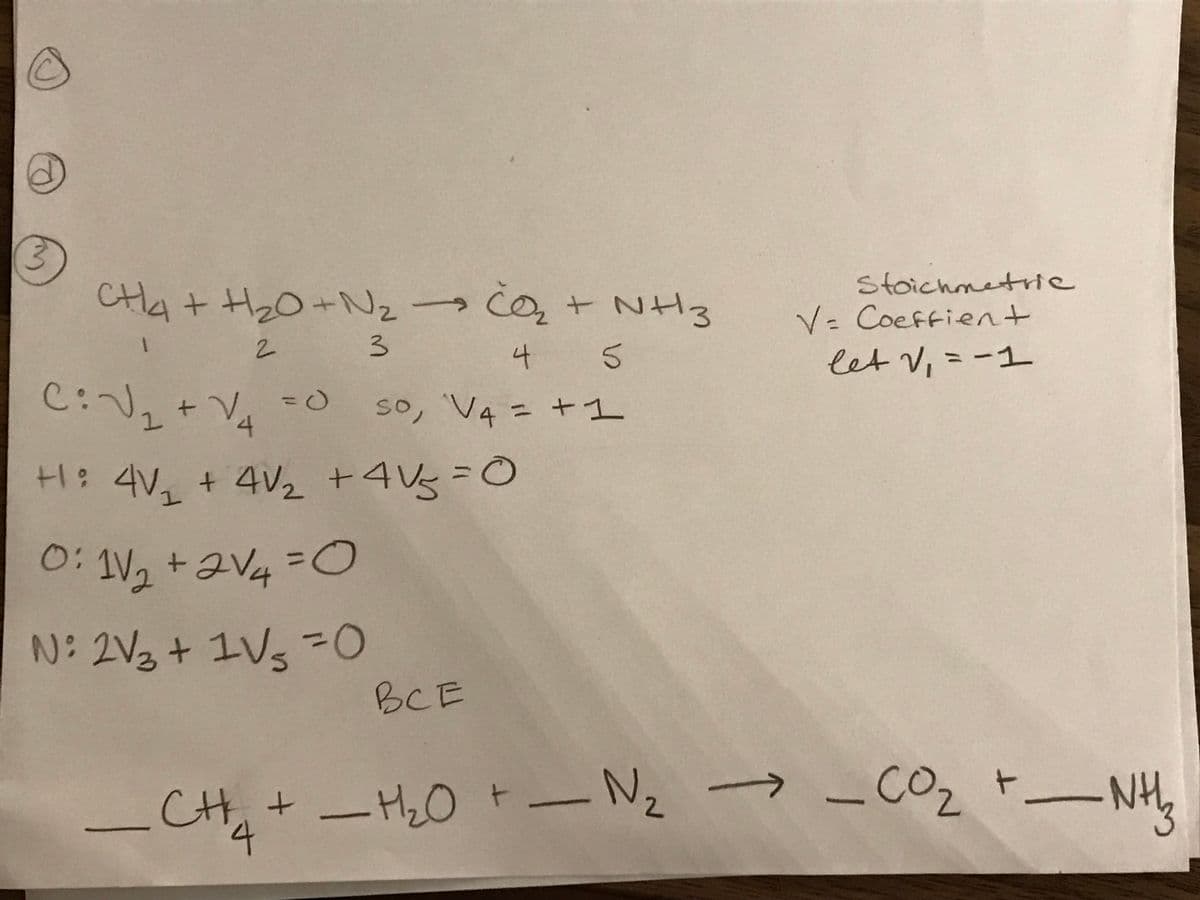 C
d
3
CH4 + H2O + N2 → CO2 + NH3
1 2 3 4 5
Stoichmetric
V = Coeffient
let V1 = -1
C: V1 + V4 = 0 so, V4 = +1
H: 4V1 + 4V2 + 4V5 = 0
O: 1V2 + 2V4 = 0
N: 2V3 + 1V5 = 0
BCE
_ CH4 + _ H2O + _ N2 → _ CO2 + _ NH3